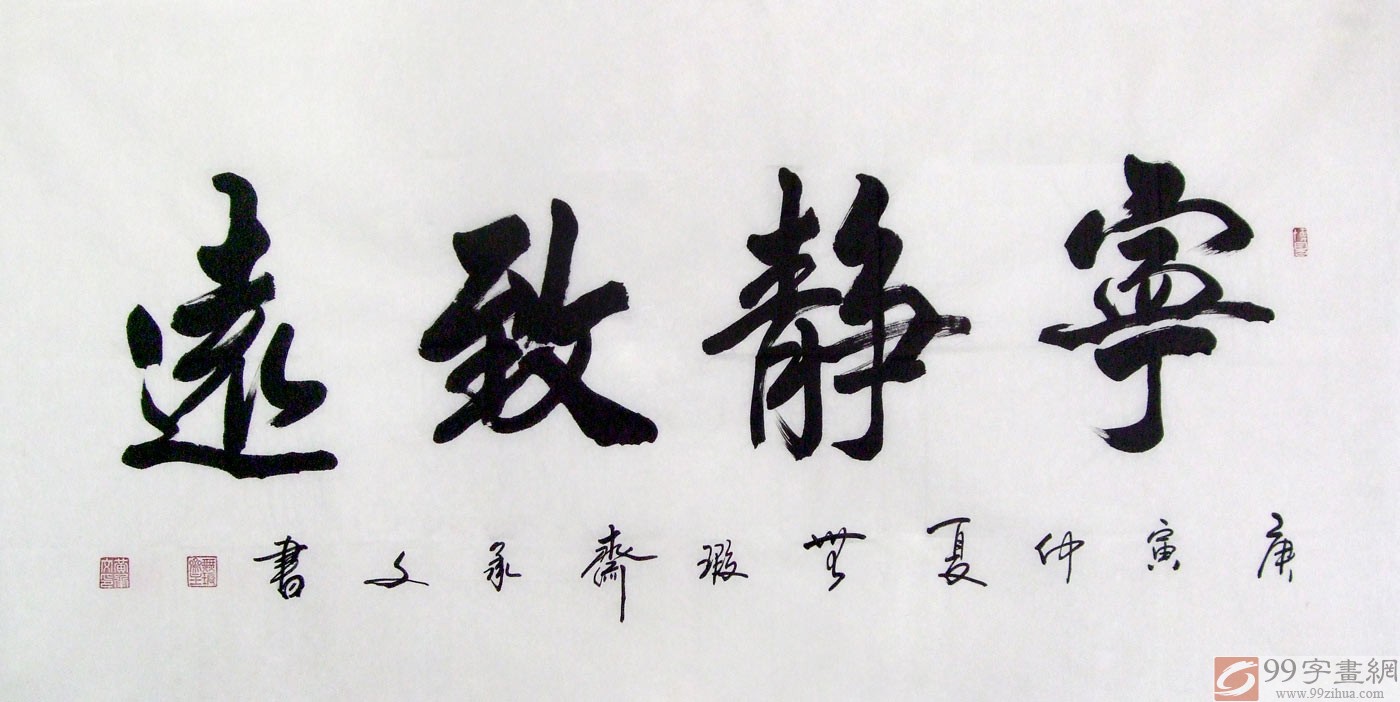 寧靜致遠
庚寅仲夏無瑕齋承文書
99字畫網
www.99zihua.com